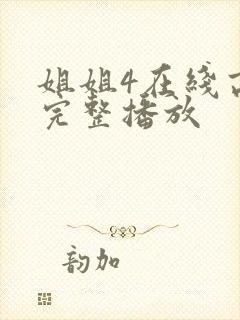 姐姐4在线
完整播放
韵加